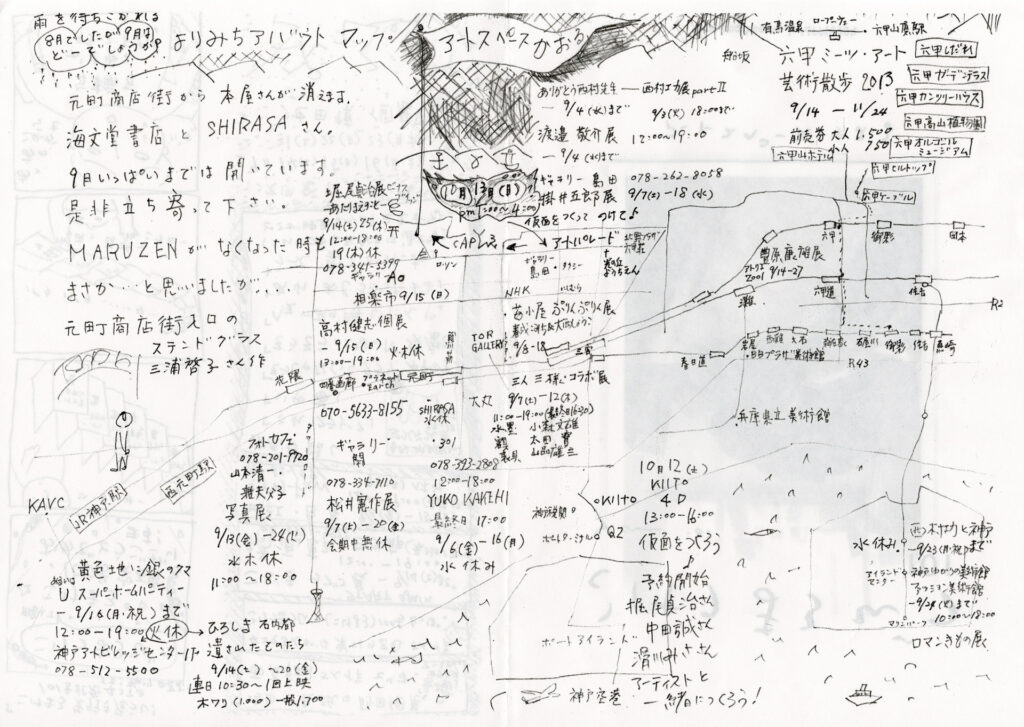 雨を待ちこがれる
8月でしたが9月は
どーでしょうか?
よりみちアバウト マップ
アートスペースかおる
元町商店街から 本屋さんが消えます.
海文堂書店 と SHIRASA さん。
9月いっぱいまでは 開いています。
是非立ち寄って下さい。
MARUZEN がなくなった時も
まさか…と思いましたが...
元町商店街入口の
ステンドグラス
三浦啓子さん作
堀尾貞治展
あたりまえのこと
9/14(土) 25(水)
12:00-18:00
19(木)休
078-341-5399
ギャラリー Ao
相楽市 9/15 (日)
高村健志個展
-9/15(日)
12:00-19:00
火木休
プラネット Earth
元町
070-5633-8155
ギャラリー
078-334-7110
松井憲作展
9/7(土)-20(金)
会期中無休
フォトカフェ
078-201-9720
山本清一
雅夫父子
写真展
9/13(金)-24(火)
水木休
11:00~18:00
KAVC
JR神戸駅
西元町駅
花隈
黄色地に銀のクマ
U スーパーホームパーティー
-9/16(月・祝)まで
12:00-19:00 火休
神戸アートビレッジセンター1F
078-512-5500
ひろしま 石内都
遺されたものたち
9/14(土)~20(金)
連日 10:30~1回上映
一般1.700
10月13日(月)
pm 1:00~4:00
CAP
ローソン
アートパレード
ありがとう西村先生 — 西村功展 part II
-9/4(水)まで
9/3(火) 18:00まで
渡邉敬介展
12:00~19:00
-9/4(水)まで
ギャラリー 島田
078-262-8058
掛井五郎展
9/7(土)-18(水)
仮面をつくって つけて♪
NHK
ぷりんぷりん展
9/8-18
TOR
GALLERY
三宮
三人三様コラボ展
9/7(土)-12(木)
11:00-19:00(最終日16:30)
大丸
SHIRASA
水休
301
078-393-2808
12:00-18:00
YUKO KAKIHI
最終日 17:00
9/6(金)-16(月)
水休み
神戸税関
KIITO
Q2
10月12(土)
KIITO
4D
13:00-16:00
仮面をつくろう
♪
予約開始
堀尾貞治さん
中田誠さん
滑川みささん
アーティストと
一緒につくろう!
ポートアイランド
神戸空港
有馬温泉
ロープーウェー
六甲山頂駅
六甲ミーツ・アート
芸術散歩 2013
9/14 — 11/24
前売券 大人 1.500
小人 750
六甲しだれ
六甲ガーデンテラス
六甲カンツリーハウス
六甲高山植物園
六甲オルゴール
ミュージアム
六甲山ホテル
六甲ヒルトップ
六甲ケーブル
六甲
御影
岡本
9/14-27
灘
六甲道
住吉
R2
岩屋
西灘
大石
新在家
石屋川
御影
住吉
魚崎
BBプラザ美術館
R43
春日道
兵庫県立美術館
西村功と神戸
水休み.
-9/23(月・祝)まで
アイランド
センター
神戸ゆかりの美術館
ファッション美術館
-9/24(火)まで
10:00~18:00
ロマンきもの展